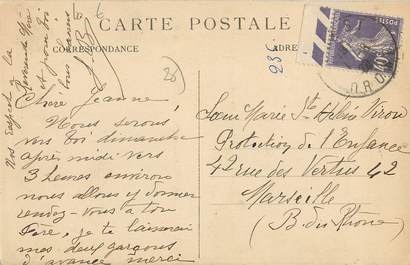 CARTE POSTALE
CORRESPONDANCE
ADRE
Nos respect a la
Révérende Mère
et pour toi
tous
236
(28)
POSTES
40
Chère Jeanne,
Nous serons
vers toi dimanche
après midi vers
3 heures environ
nous allons y donner
rendez-vous à ton
Père, je te laisserai
mes deux garçons
d'avance merci
Sœur Marie St
Protection de l'Enfance
42 rue des Vertus 42
Marseille
(B. du Rhône)